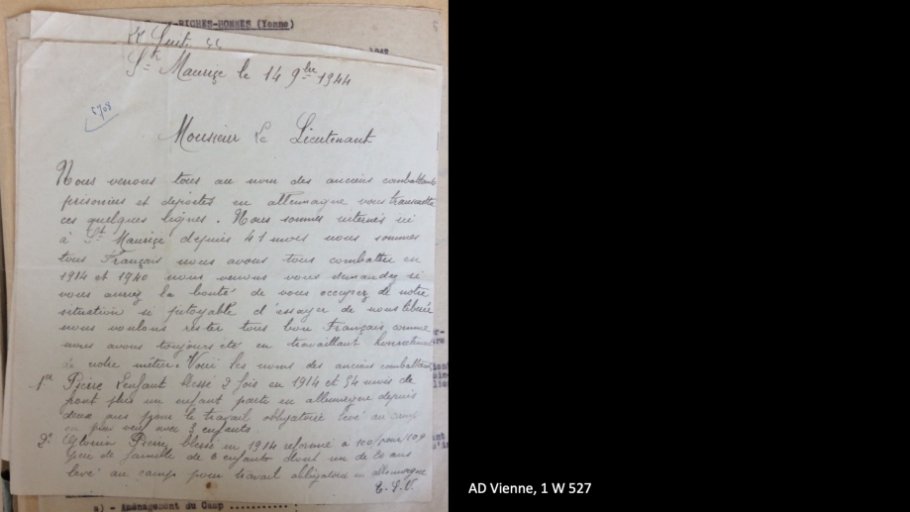 -RICHES-HOMMES (Yonne)
St Maurice le 14 9bre 1944
5708
Monsieur Le Lieutenant
Nous venons tous au nom des anciens combattants
prisoniers et déportés en allemagne vous transmettre
ces quelques lignes. Nous sommes internés ici
à St Maurice depuis 41 mois nous sommes
tous Français nous avons tous combattre en
1914 et 1940 nous venons vous demandez si
vous auriez la bonté de vous occupez de notre
situation si pitoyable d'essayer de nous libérér
nous voulons rester tous bon Français comme
nous avons toujours été en travaillant honnetement
de notre métier. Voici les noms des anciens combattants
1er Pierre Lenfant blessé 2 fois en 1914 et 54 mois de
front plus un enfant partie en allemagne depuis
deux ans pour le travail obligatoire levé au camp
en plus veuf avec 3 enfants.
2e Pierre blessé en 1914 reformé a 100 pour 100
père de famille de 6 enfants dont un de 20 ans
levé au camp pour travail obligatoire en allemagne
T.S.V.
a) - Aménagement du Camp ............
AD Vienne, 1 W 527